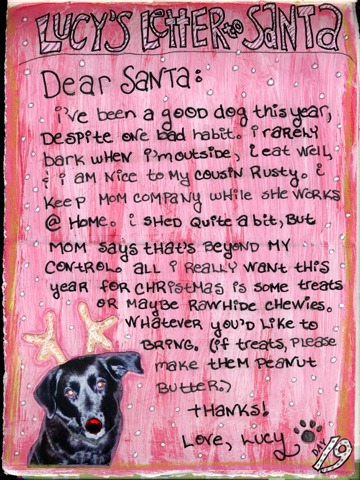 LUCY'S LETTER to SANTA
Dear SANTA:
i've been a good dog this year,
DESPITE ONE BAD HABIT. i RARELY
bark WHEN i'm outside, i eat well,
& i AM NICE to MY cousin Rusty. i
KEEP MOM COMPANY while she works
@ HOME. i SHED QUITE A BIT, BUT
MOM SAYS THAT'S BEYOND MY
CONTROL. ALL i REALLY WANT THIS
year for CHRISTMAS is some treats
OR MAYBE RAWHIDE CHEWIES.
WHATEVER YOU'D LIKE TO
BRING. (if TREATS, PLEASE
MAKE THEM PEANUT
BUTTER.)
THANKS!
LOVE, LUCY
DAY
19